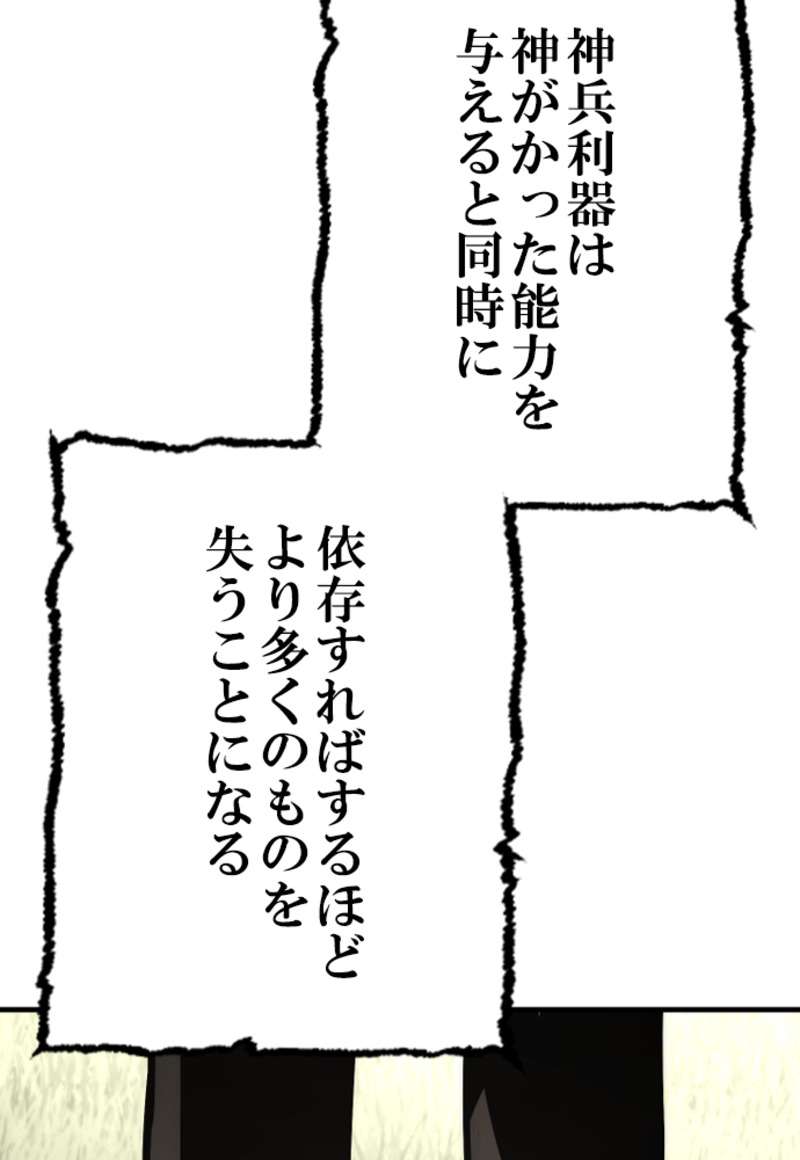 神兵利器は
神がかった能力を
与えると同時に
依存すればするほど
より多くのものを
失うことになる